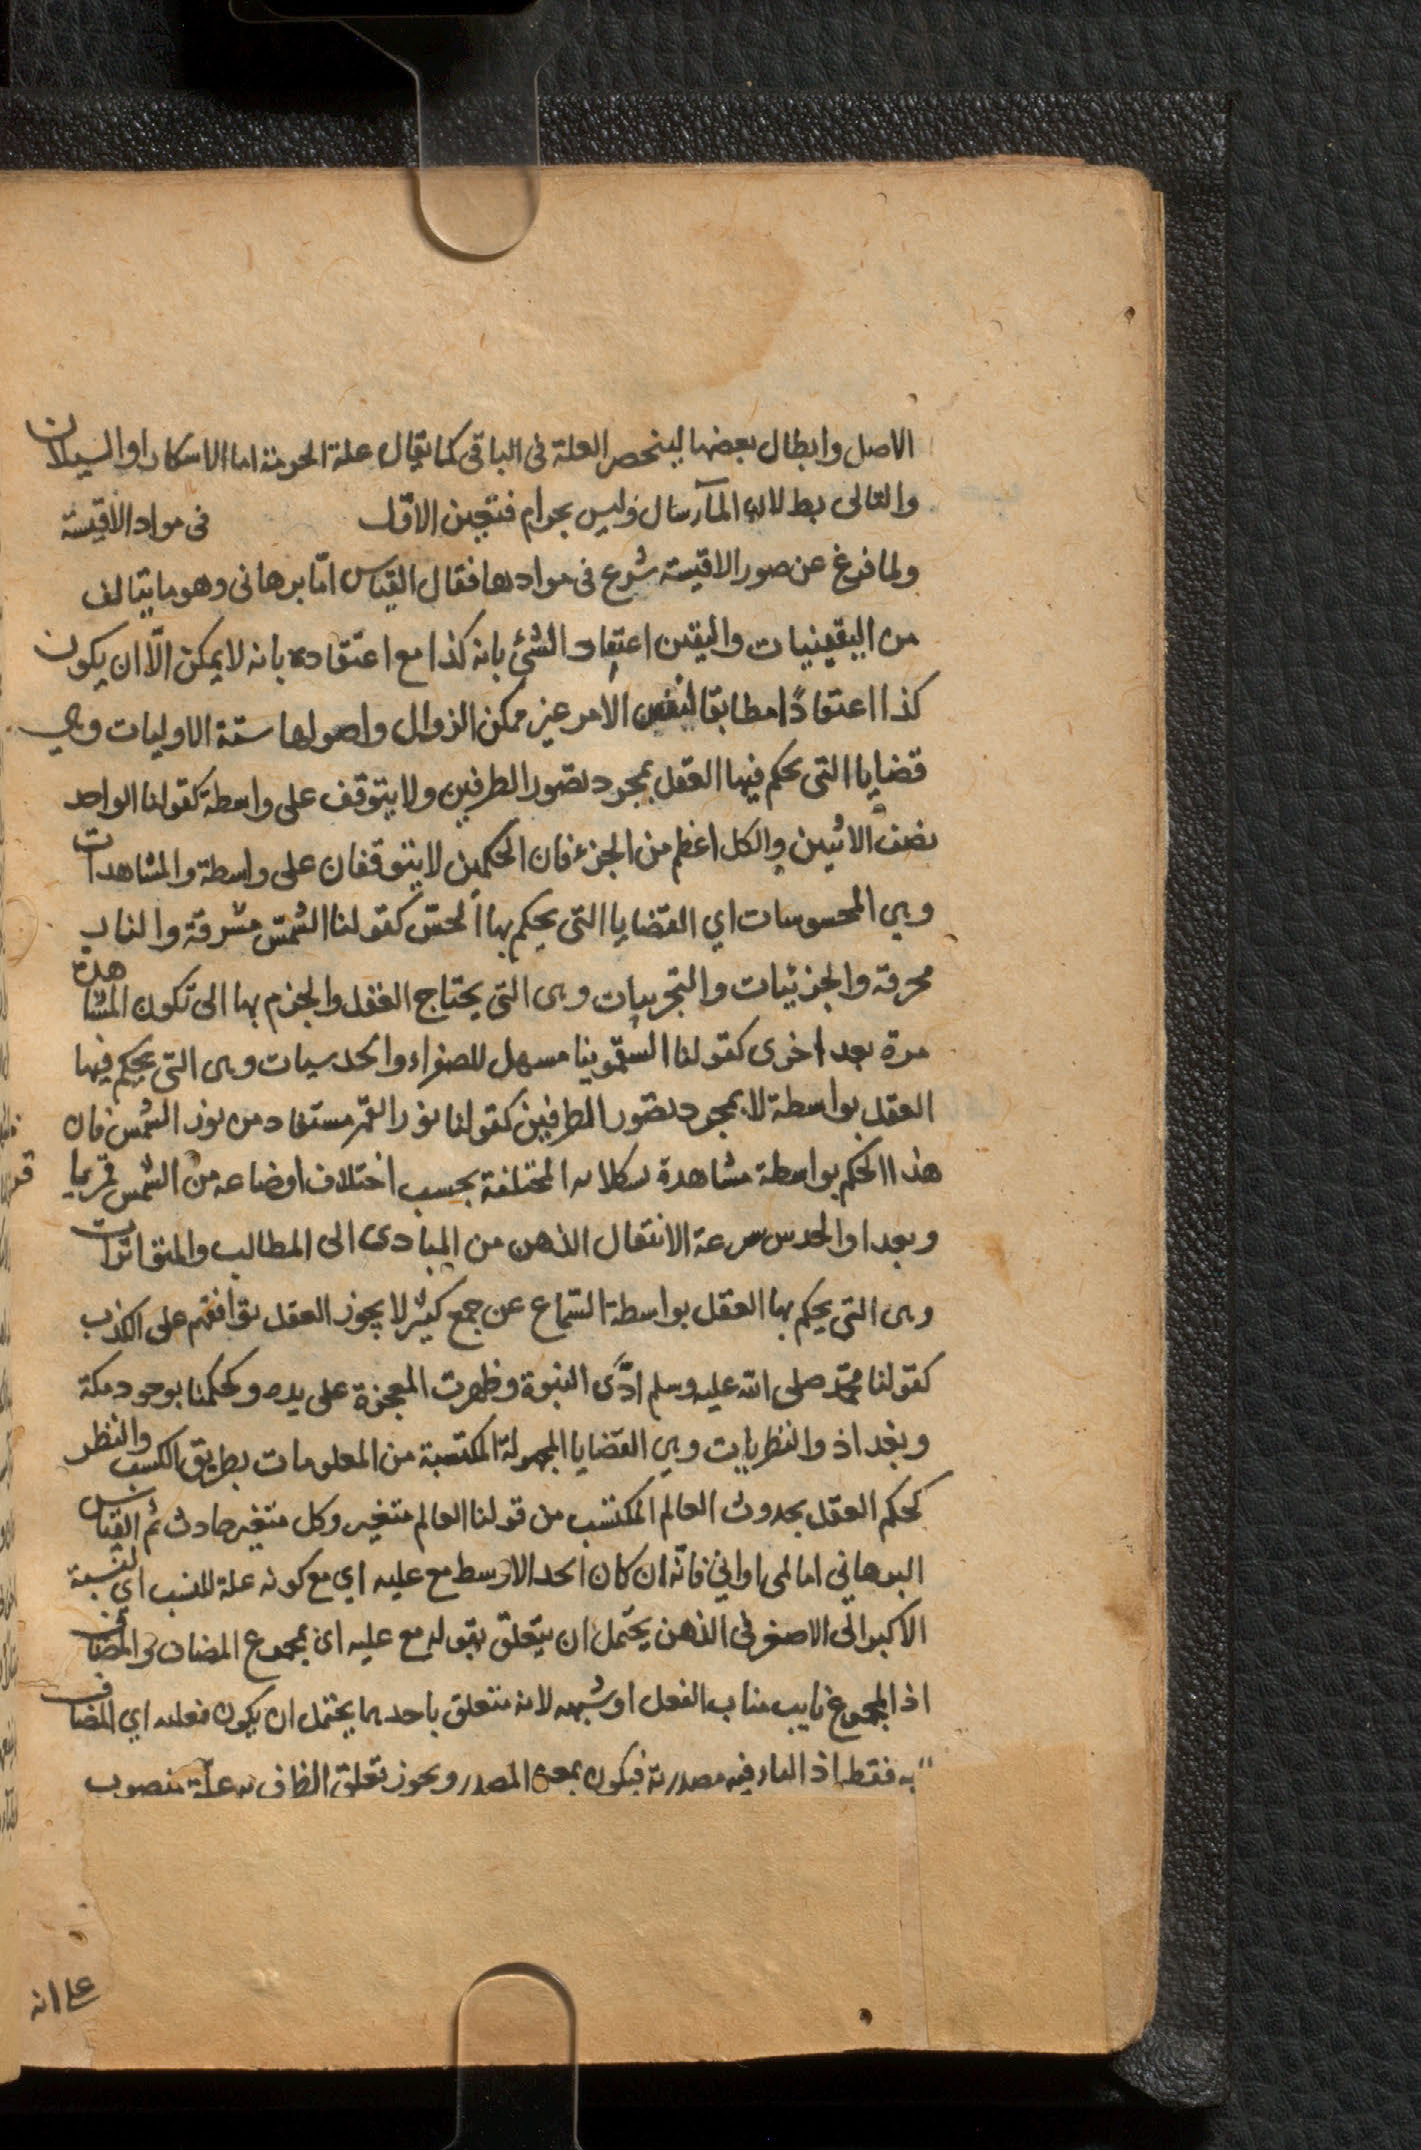 الاصل وابطال بعضها لينحصر العلة فى الباقى كما يقال علة الحرمة اما الاسكار او السيلان
والتالى بط لان المآء سال وليس بحرام فتعين الاوّل فى مواد الاقيسة
ولما فرغ عن صور الاقيسة شرع فى موادها فقال القياس امّا برهانى وهو ما يتالف
من اليقينيات واليقين اعتقاد الشئ بانه كذا مع اعتقاده بانه لا يمكن الّا ان يكون
كذا اعتقادًا مطابقا لنفس الامر غير ممكن الزوال واصولها ستة الاوليات وهي
قضايا التى يحكم فيها العقل بمجرد تصور الطرفين ولا يتوقف على واسطة كقولنا الواحد
نصف الاثنين والكل اعظم من الجزء فان الحكمين لا يتوقفان على واسطة والمشاهدات
وهي المحسوسات اي القضايا التى يحكم بها الحسّ كقولنا الشمس مشرقة والنار
محرقة والجزئيات والتجربيات وهى التى يحتاج العقل والجزم بها الى تكون المشاهدة
مرة بعد اخرى كقولنا السقمونيا مسهل للصفراء والحدسيات وهى التى يحكم فيها
العقل بواسطة لا بمجرد تصور الطرفين كقولنا نور القمر مستفاد من نور الشمس فان
هذا الحكم بواسطة مشاهدة المختلفة بحسب اختلاف اوضاعه من الشمس قربا
وبعدا والحدس سرعة الانتقال الذهن من المبادى الى المطالب والمتواترات
وهى التى يحكم بها العقل بواسطة السّماع عن جمع كثير لا يجوز العقل توافقهم على الكذب
كقولنا محمّد صلى الله عليه وسلم ادّى النبوة وظهرت المعجزة على يده وكحكمنا بوجود مكة
وبغداذ والنظريات وهي القضايا المجهولة المكتسبة من المعلومات بطريق الكسب والنظر
كحكم العقل بحدوث العالم المكتسب من قولنا العالم متغير وكل متغير حادث ثم القياس
البرهاني اما لمى او اني فانّه ان كان الحد الاوسط مع عليه اي مع كونه علة للنسب اي لنسبة
الاكبر الى الاصغر فى الذهن يحتمل ان يتعلق بقوله مع عليه اى بمجموع المضاف والمضاف
اذ المجموع نايب مناب الفعل او شبهه لانه متعلق باحدهما يحتمل ان يكون اي المضاف
به فقط اذ الياء فيه مصدرية فيكون بمعنى المصدر ويجوز تعلق الظرف به علّة منصوب
على انه